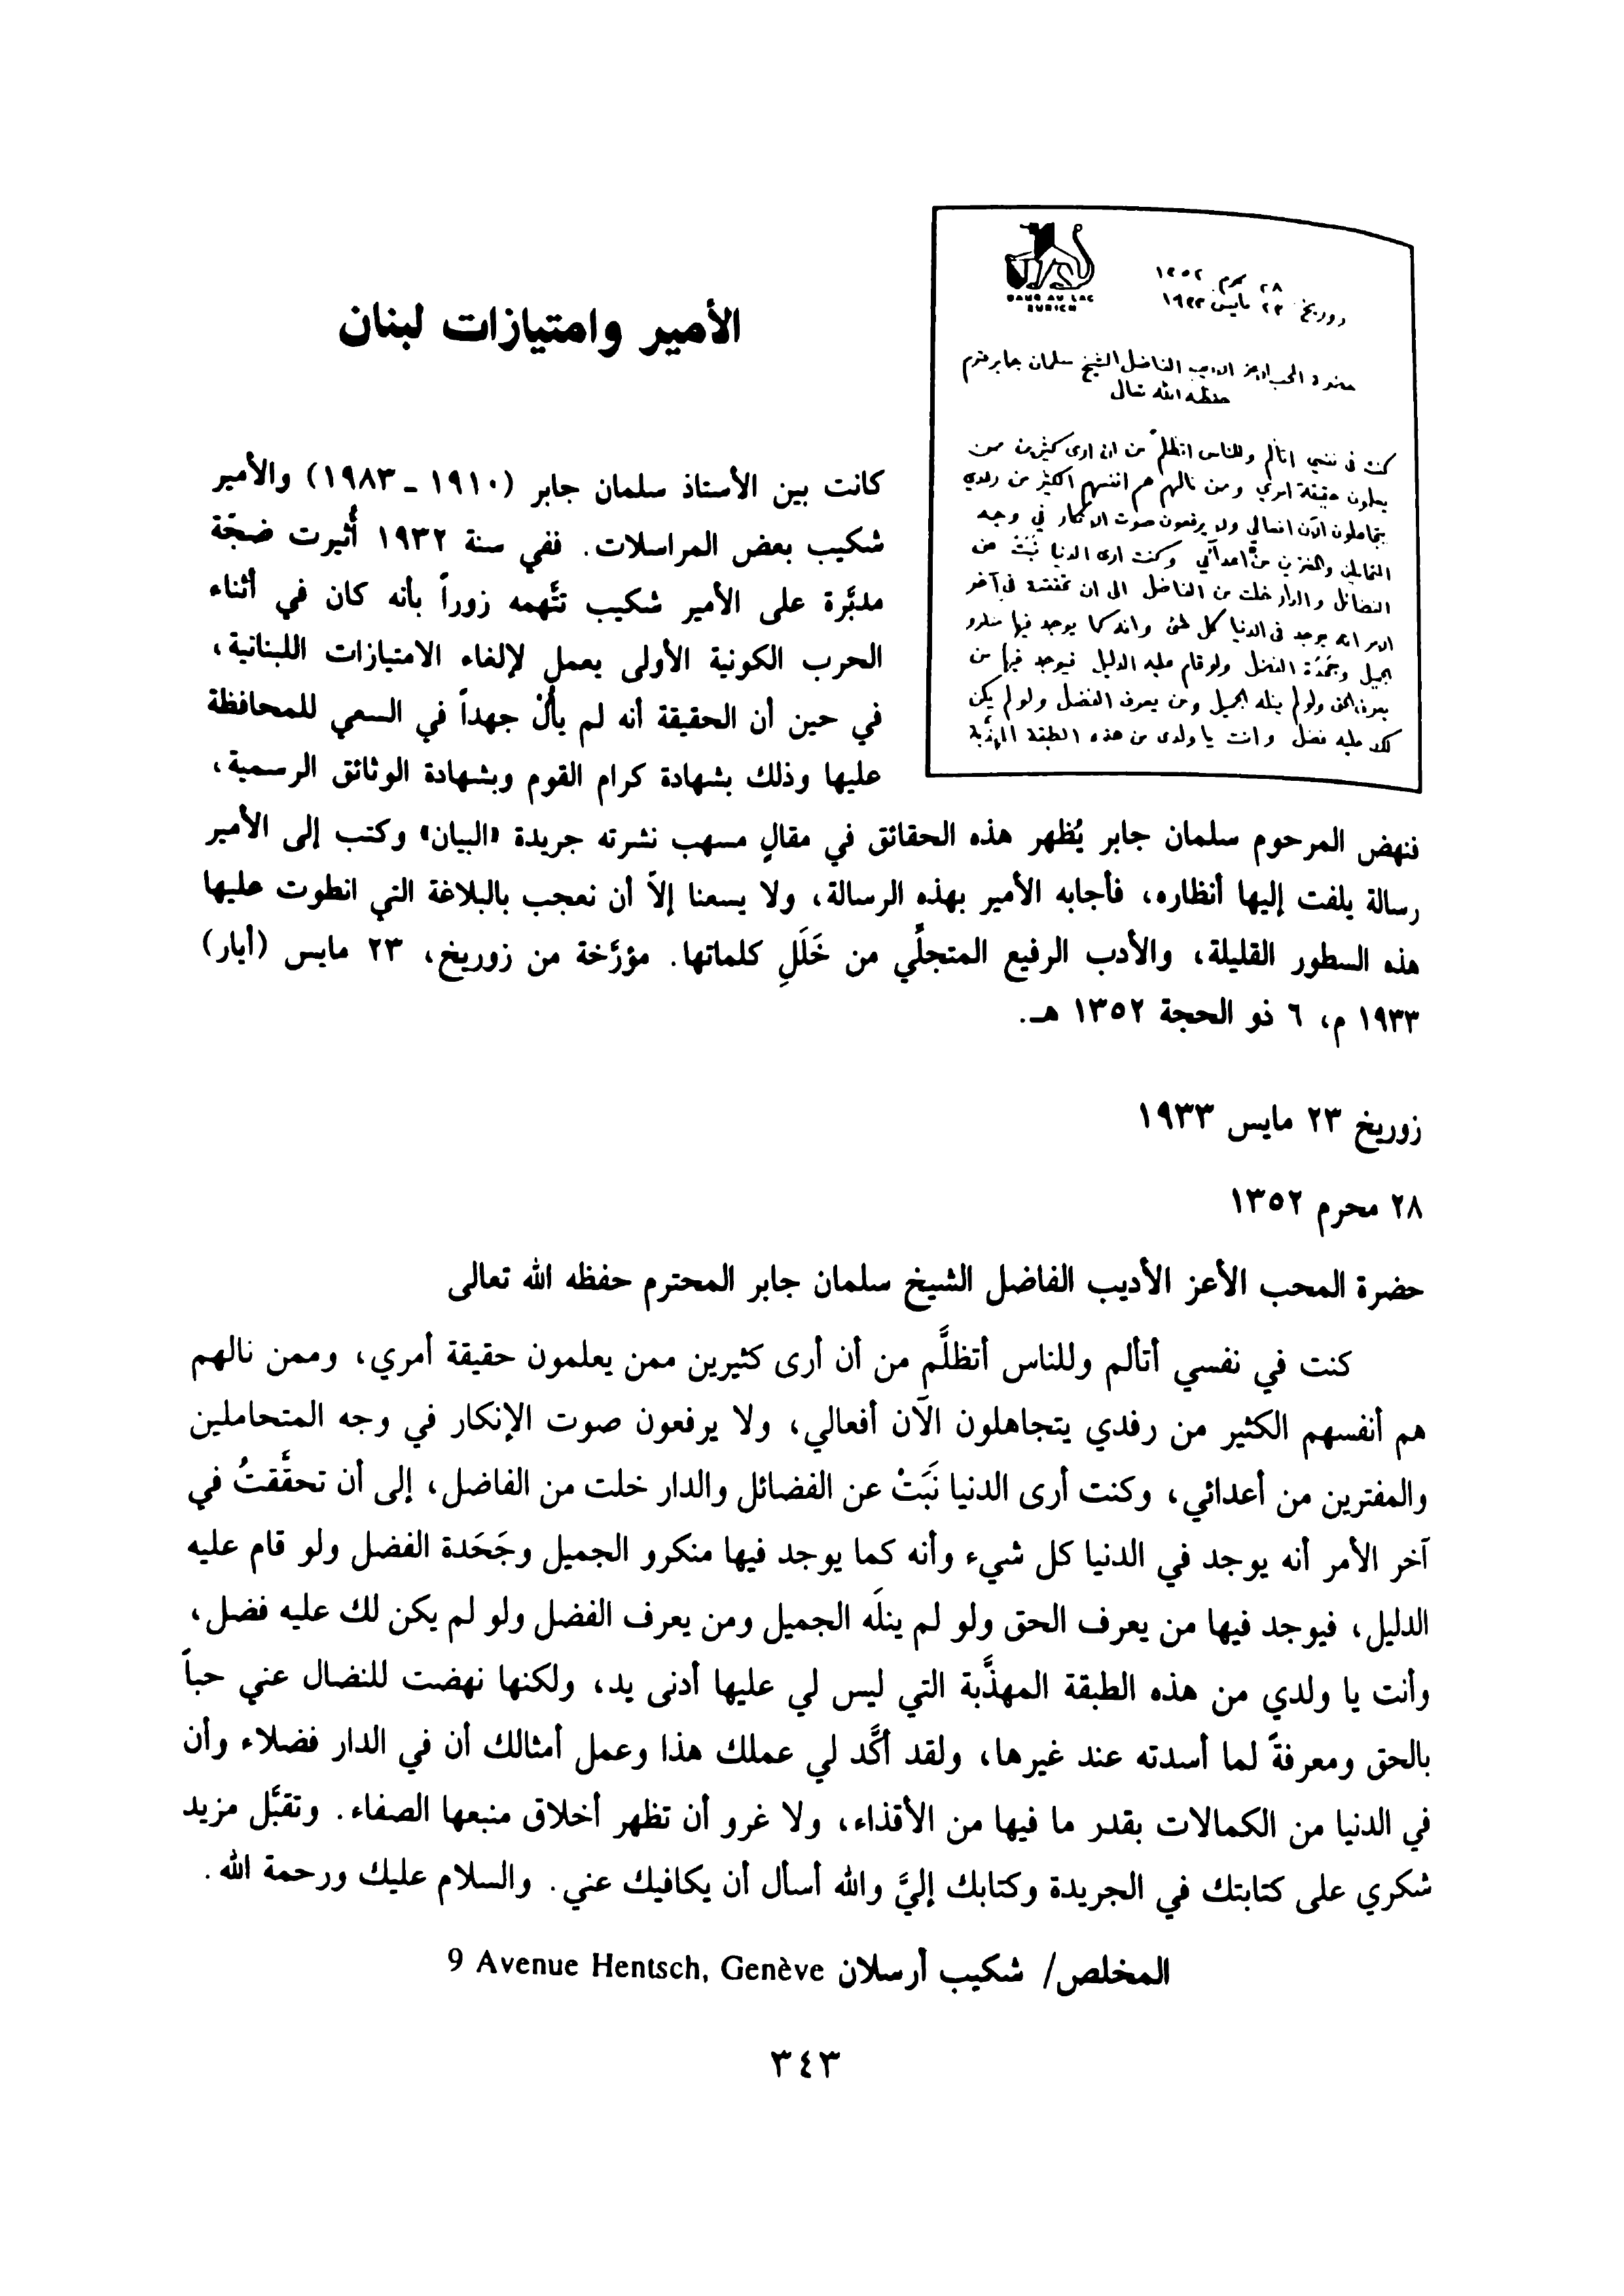 BAUR AU LAC
ZURICH
٢٨ محرم ١٣٥٢
زوريخ ٢٣ مايس ١٩٣٣
حضرة المحب الاعز الاديب الفاضل الشيخ سلمان جابر المحترم
حفظه الله تعالى
كنت في نفسي اتألم وللناس اتظلّم من ان ارى كثيرين ممن
يعلمون حقيقة امري وممن نالهم هم انفسهم الكثير من رفدي
يتجاهلون الآن افعالي ولا يرفعون صوت الانكار في وجه
المتحاملين والمفترين من اعدائي وكنت ارى الدنيا نَبَتْ عن
الفضائل والدار خلت من الفاضل الى ان تحققت في آخر
الامر انه يوجد في الدنيا كل شيء وانه كما يوجد فيها منكرو
الجميل وجَحَدَة الفضل ولو قام عليه الدليل فيوجد فيها من
يعرف الحق ولو لم ينله الجميل ومن يعرف الفضل ولو لم يكن
لك عليه فضل وانت يا ولدي من هذه الطبقة المهذّبة
الأمير وامتيازات لبنان
كانت بين الأستاذ سلمان جابر (١٩١٠ ـ ١٩٨٣) والأمير
شكيب بعض المراسلات. ففي سنة ١٩٣٢ أُثيرت ضجّة
مدبَّرة على الأمير شكيب تتَّهمه زوراً بأنه كان في أثناء
الحرب الكونية الأولى يعمل لإلغاء الامتيازات اللبنانية،
في حين أن الحقيقة أنه لم يألُ جهداً في السعي للمحافظة
عليها وذلك بشهادة كرام القوم وبشهادة الوثائق الرسمية،
فنهض المرحوم سلمان جابر يُظهر هذه الحقائق في مقالٍ مسهب نشرته جريدة «البيان» وكتب إلى الأمير
رسالة يلفت إليها أنظاره، فأجابه الأمير بهذه الرسالة، ولا يسعنا إلاّ أن نعجب بالبلاغة التي انطوت عليها
هذه السطور القليلة، والأدب الرفيع المتجلّي من خَلَلِ كلماتها. مؤرَّخة من زوريخ، ٢٣ مايس (أيار)
١٩٣٣ م، ٦ ذو الحجة ١٣٥٢ هـ.
زوريخ ٢٣ مايس ١٩٣٣
٢٨ محرم ١٣٥٢
حضرة المحب الأعز الأديب الفاضل الشيخ سلمان جابر المحترم حفظه الله تعالى
كنت في نفسي أتألم وللناس أتظلَّم من أن أرى كثيرين ممن يعلمون حقيقة أمري، وممن نالهم
هم أنفسهم الكثير من رفدي يتجاهلون الآن أفعالي، ولا يرفعون صوت الإنكار في وجه المتحاملين
والمفترين من أعدائي، وكنت أرى الدنيا نَبَتْ عن الفضائل والدار خلت من الفاضل، إلى أن تحقَّقتُ في
آخر الأمر أنه يوجد في الدنيا كل شيء وأنه كما يوجد فيها منكرو الجميل وجَحَدة الفضل ولو قام عليه
الدليل، فيوجد فيها من يعرف الحق ولو لم ينلَه الجميل ومن يعرف الفضل ولو لم يكن لك عليه فضل،
وأنت يا ولدي من هذه الطبقة المهذَّبة التي ليس لي عليها أدنى يد، ولكنها نهضت للنضال عني حباً
بالحق ومعرفةً لما أسدته عند غيرها، ولقد أكَّد لي عملك هذا وعمل أمثالك أن في الدار فضلاء وأن
في الدنيا من الكمالات بقدر ما فيها من الأقذاء، ولا غرو أن تظهر أخلاق منبعها الصفاء. وتقبَّل مزيد
شكري على كتابتك في الجريدة وكتابك إليَّ والله أسأل أن يكافيك عني. والسلام عليك ورحمة الله.
المخلص/ شكيب أرسلان 9 Avenue Hentsch, Genève
٣٤٣